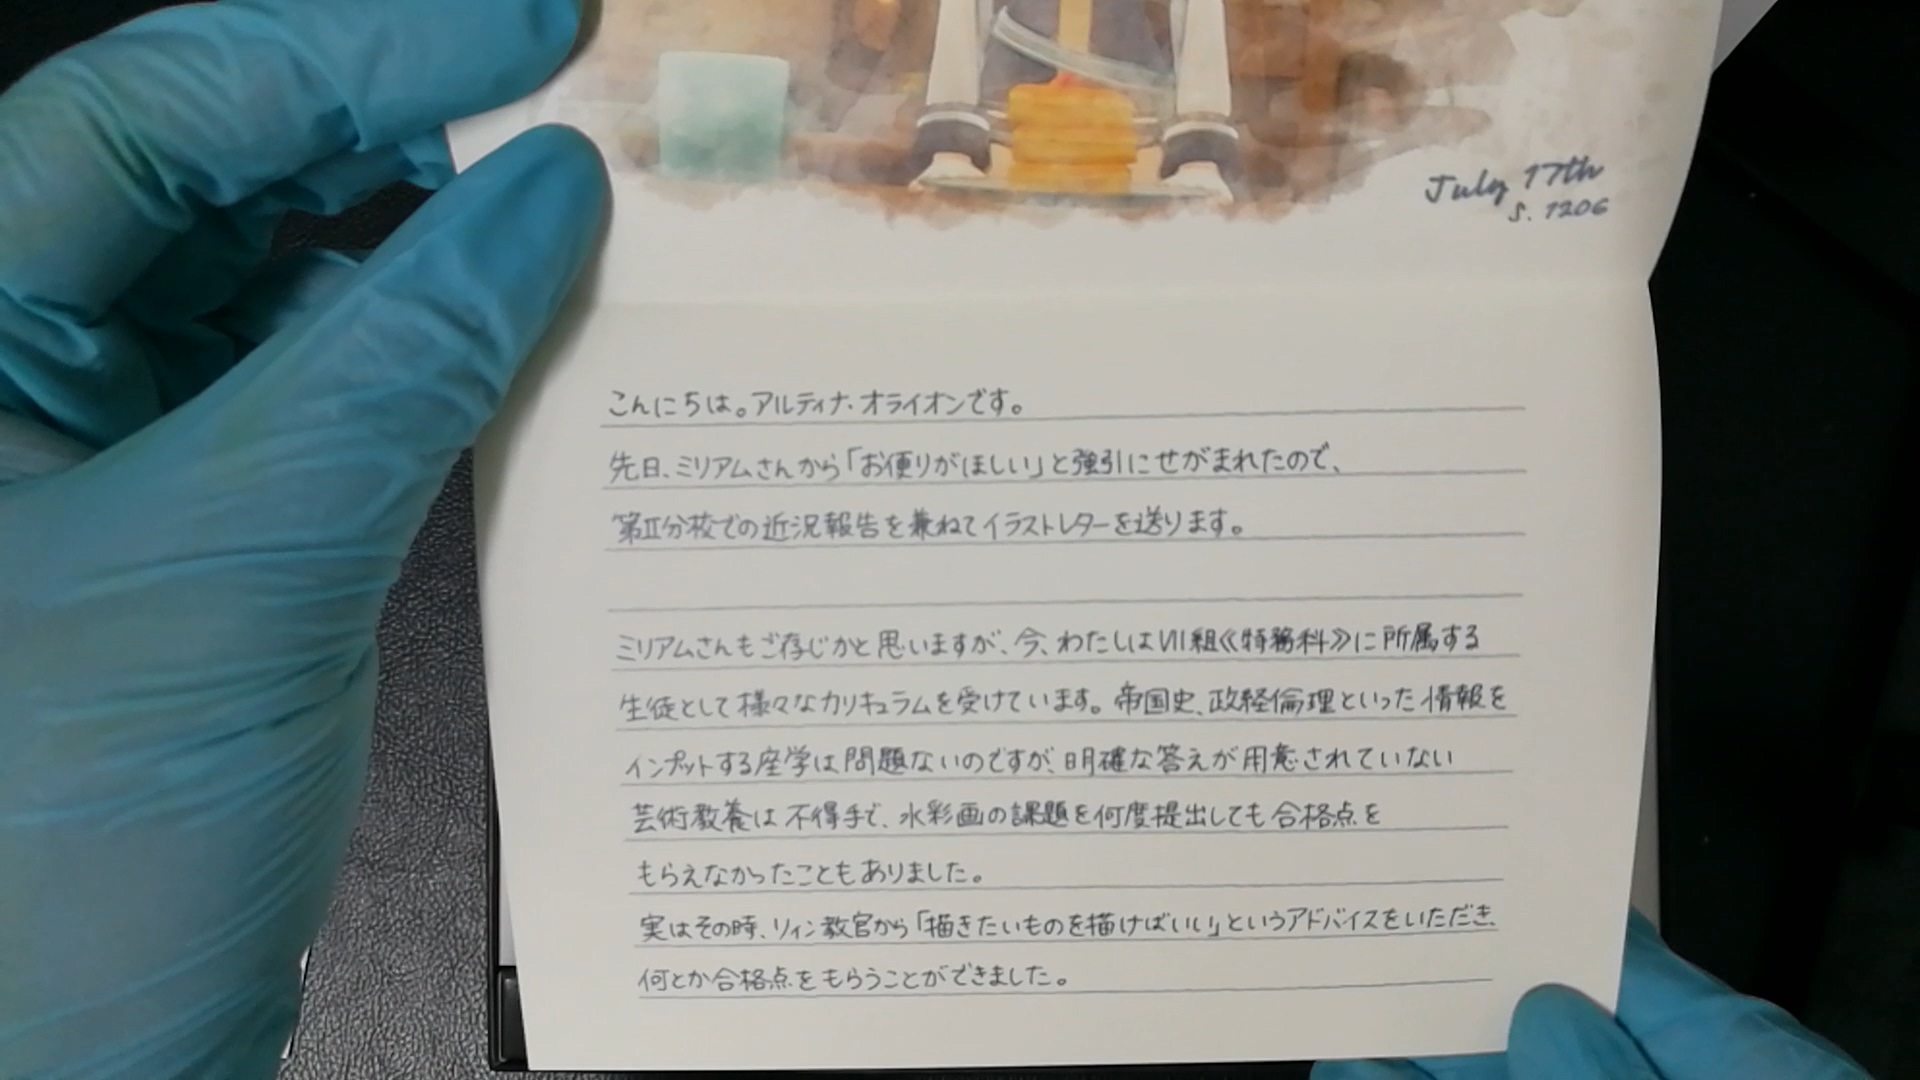 July 17th
S. 1206
こんにちは。アルティナ・オライオンです。
先日、ミリアムさんから「お便りがほしい」と強引にせがまれたので、
第Ⅱ分校での近況報告を兼ねてイラストレターを送ります。
ミリアムさんもご存じかと思いますが、今、わたしはⅦ組《特務科》に所属する
生徒として様々なカリキュラムを受けています。帝国史、政経倫理といった情報を
インプットする座学は問題ないのですが、明確な答えが用意されていない
芸術教養は不得手で、水彩画の課題を何度提出しても合格点を
もらえなかったこともありました。
実はその時、リィン教官から「描きたいものを描けばいい」というアドバイスをいただき、
何とか合格点をもらうことができました。